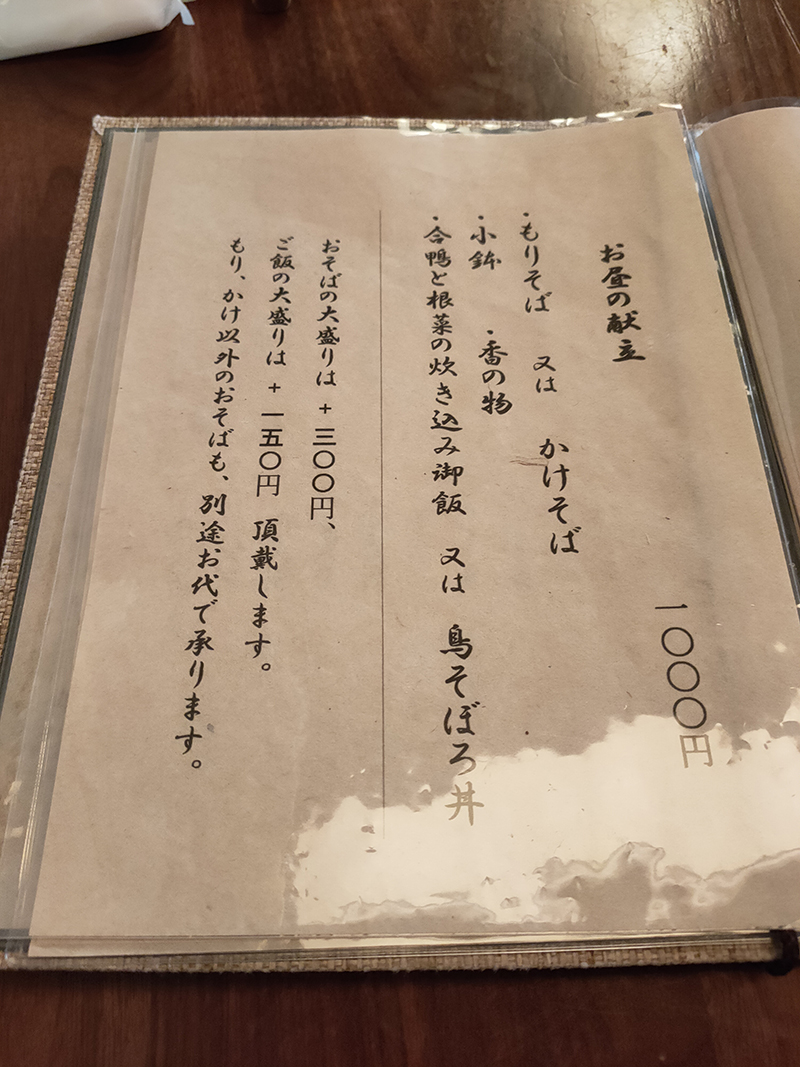 お昼の献立 一〇〇〇円
・もりそば 又は かけそば
・小鉢 ・香の物
・合鴨と根菜の炊き込み御飯 又は 鳥そぼろ丼
おそばの大盛りは + 三〇〇円、
ご飯の大盛りは + 一五〇円 頂戴します。
もり、かけ以外のおそばも、別途お代で承ります。